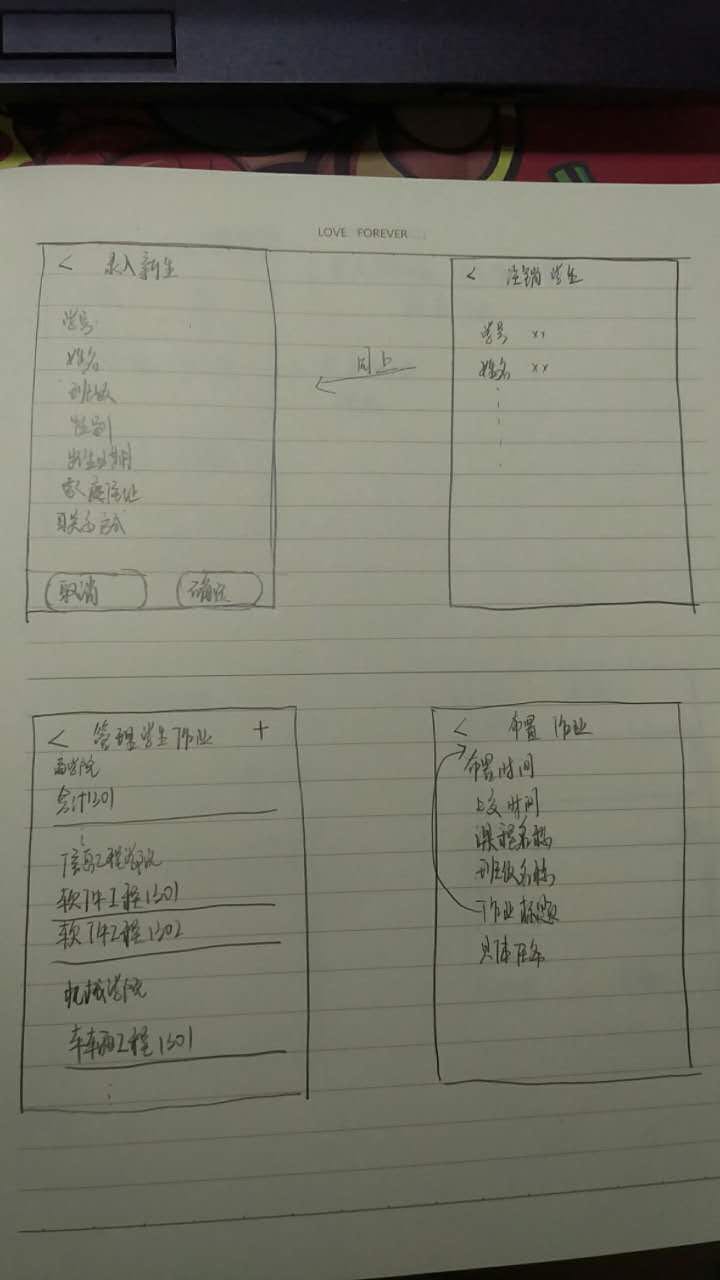 LOVE FOREVER
< 录入新生
学号
姓名
班级
性别
出生日期
家庭住址
联系方式
取消 确定
同上
< 注销学生
学号 xx
姓名 xx
< 管理学生作业 +
商学院
会计1301
信息工程学院
软件工程1301
软件工程1302
机械学院
车辆工程1301
< 布置作业
布置时间
上交时间
课程名称
班级名称
作业标题
具体任务